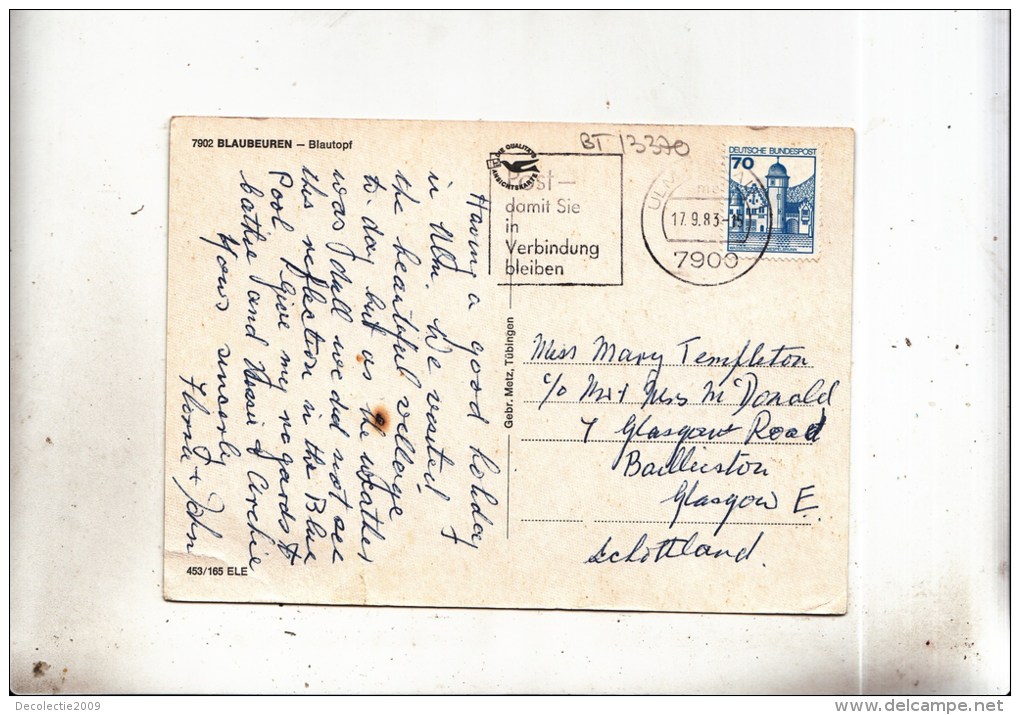 7902 BLAUBEUREN – Blautopf
BT 13370
DIE QUALITÄTS
ANSICHTSKARTE
Post –
damit Sie
in
Verbindung
bleiben
DEUTSCHE BUNDESPOST
70
ULM
17.9.83
7900
Having a good holiday
in Ulm. We visited
the beautiful village
to-day but as the weather
was dull we did not see
the reflection in the Blue
Pool. Give my regards to
Cathie and Archie
Yours sincerely
+ John
453/165 ELE
Gebr. Metz, Tübingen
Miss Mary Templeton
c/o Mr + Mrs McDonald
7 Glasgow Road
Baillieston
Glasgow E.
Schottland.
Decolectie2009
delcampe.net